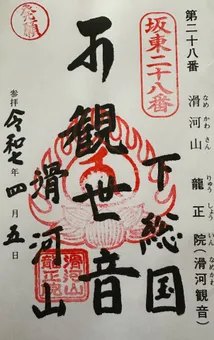 第二十八番
滑河山
なめかわさん
龍正院(滑河観音)
りゅうしょういん なめかわ
坂東二十八番
下総国
観世音
滑河山
参拝 令和七年四月五日
滑河山
龍正院